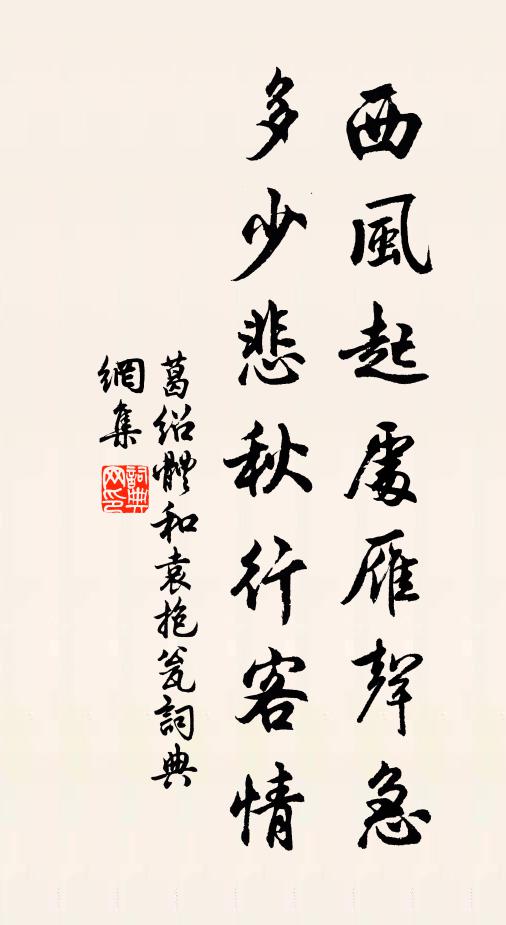 西風起處雁聲急
多少悲秋行客情
葛紹體和袁抱瓮詞典
網集
詞典網印